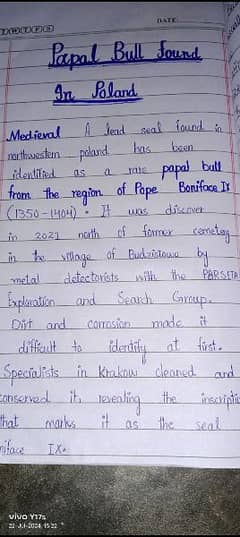 DATE:
Papal Bull found
In Poland
Medieval A lead seal found in
northwestern poland has been
identified as a rare papal bull
from the region of Pope Boniface IX
(1350-1404). It was discover
in 2021 north of former cemetey
in the village of Budzistowo by
metal detectorists with the PARSETA
Exploration and Search Group.
Dirt and corrosion made it
difficult to iderdify at first.
Specialists in Krakow cleaned and
conserved it, revealing the inscriptio
that marks it as the seal
niface IX.
vivo Y17s
22-Jul-2024, 15:22